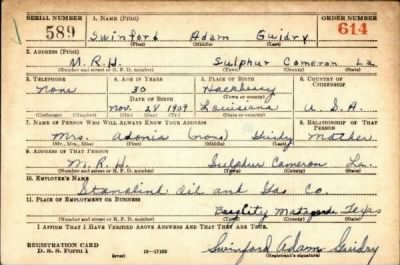 SERIAL NUMBER 1. NAME (Print) ORDER NUMBER
589 Swinford Adam Guidry 614
(First) (Middle) (Last)
2. ADDRESS (Print)
M.R.H. Sulphur Cameron La
(Number and street or R. F. D. number) (Town) (County) (State)
3. TELEPHONE 4. AGE IN YEARS 5. PLACE OF BIRTH 6. COUNTRY OF CITIZENSHIP
None 30 Hackberry
DATE OF BIRTH (Town or county)
Nov. 28 1909 Louisiana U.S.A.
(Exchange) (Number) (Mo.) (Day) (Yr.) (State or country)
7. NAME OF PERSON WHO WILL ALWAYS KNOW YOUR ADDRESS 8. RELATIONSHIP OF THAT PERSON
Mrs. Adonia (none) Guidry Mother
(Mr., Mrs., Miss) (First) (Middle) (Last)
9. ADDRESS OF THAT PERSON
M.R.H. Sulphur Cameron La.
(Number and street or R. F. D. number) (Town) (County) (State)
10. EMPLOYER'S NAME
Stanolind Oil and Gas Co.
11. PLACE OF EMPLOYMENT OR BUSINESS
Bay City Texas
(Number and street or R. F. D. number) (Town) (County) (State)
I AFFIRM THAT I HAVE VERIFIED ABOVE ANSWERS AND THAT THEY ARE TRUE.
REGISTRATION CARD
D. S. S. Form 1 (over) 16—17105 Swinford Adam Guidry
(Registrant's signature)